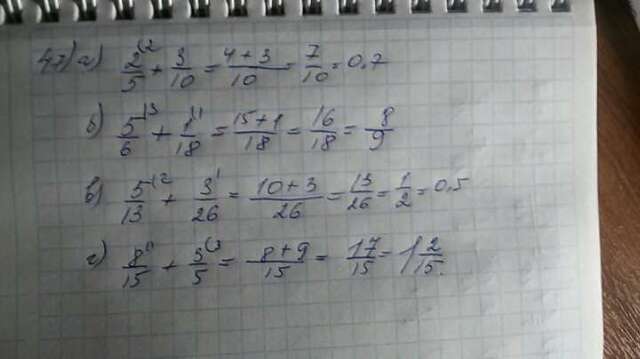 47) а) 2/5 ⁽² + 3/10 = 4+3/10 = 7/10 = 0,7
б) 5/6 ⁽³ + 1/18 ⁽¹ = 15+1/18 = 16/18 = 8/9
в) 5/13 ⁽² + 3/26 ⁽¹ = 10+3/26 = 13/26 = 1/2 = 0,5
г) 8/15 ⁽¹ + 3/5 ⁽³ = 8+9/15 = 17/15 = 1 2/15.